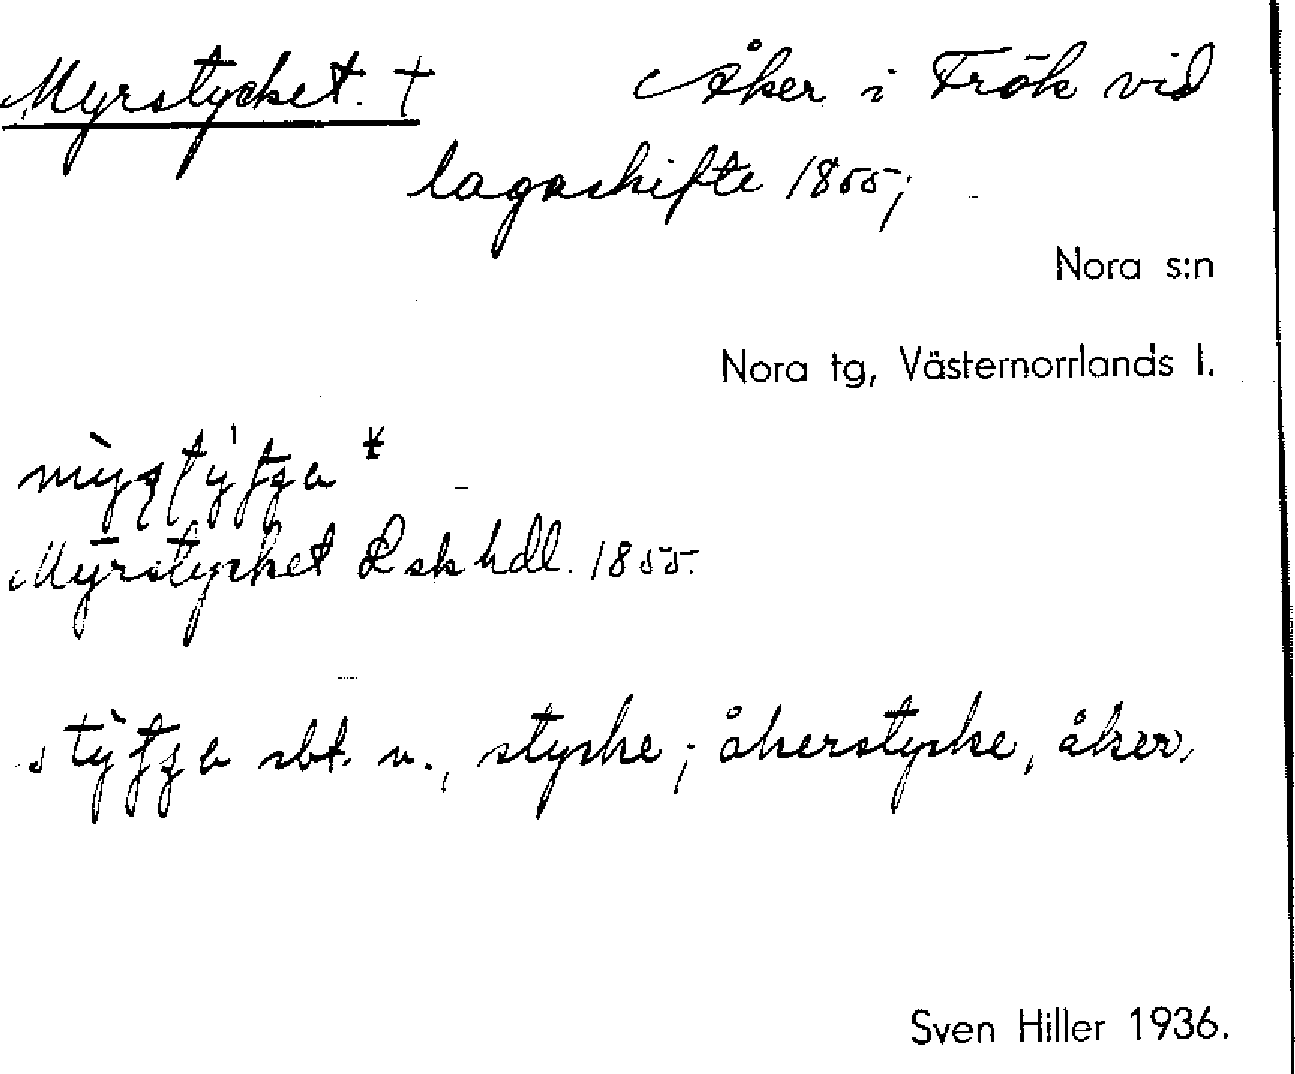 Myrstycket. † Åker i Frök vid
lagaskifte 1855;
Nora s:n
Nora tg, Västernorrlands l.
Myrstycket Lsk hdl. 1855.
sbt. n., stycke; åkerstycke, åker.
Sven Hiller 1936.